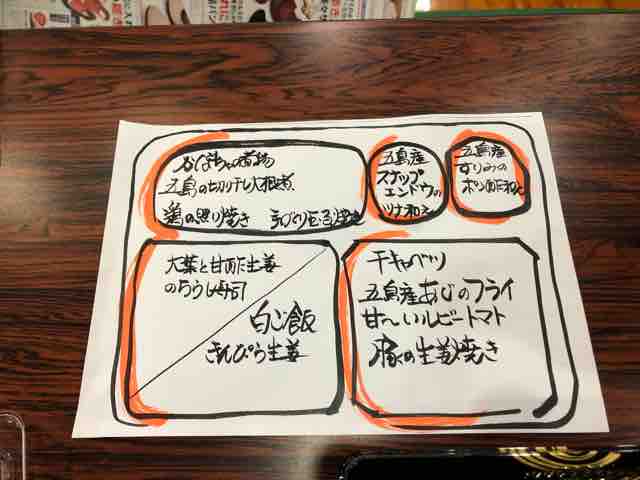 かぼちゃの煮物
五島の切り干し大根煮
鶏の照り焼き 手づくり玉子焼き
五島産
スナップ
エンドウの
ツナ和え
五島産
すりみの
ポン酢和え
大葉と甘酢生姜
のちらし寿司
白ご飯
きんぴら生姜
千キャベツ
五島産あじのフライ
甘〜いルビートマト
豚の生姜焼き